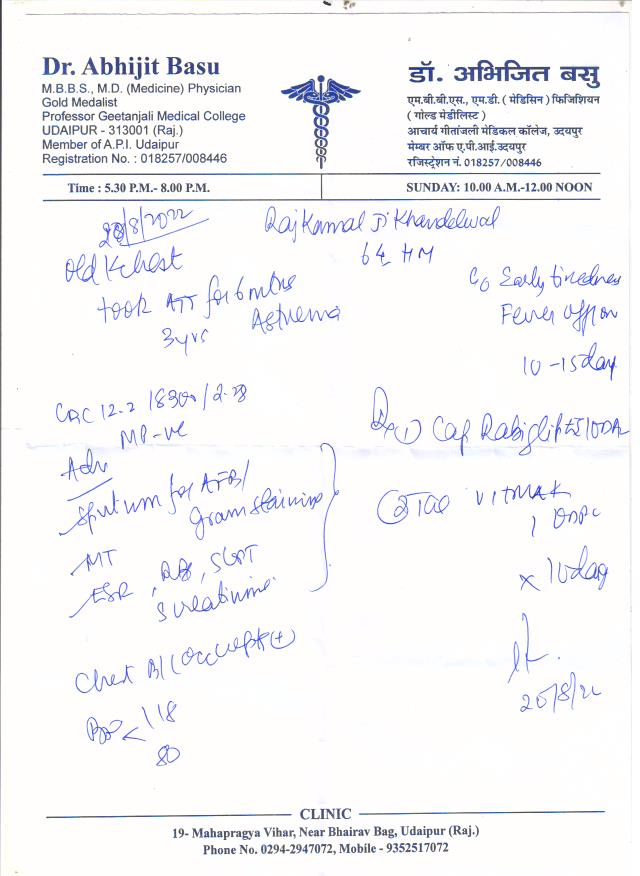 Dr. Abhijit Basu
M.B.B.S., M.D. (Medicine) Physician
Gold Medalist
Professor Geetanjali Medical College
UDAIPUR - 313001 (Raj.)
Member of A.P.I. Udaipur
Registration No. : 018257/008446
डॉ. अभिजित बसु
एम.बी.बी.एस., एम.डी. ( मेडिसिन ) फिजिशियन
( गोल्ड मेडीलिस्ट )
आचार्य गीतांजली मेडिकल कॉलेज, उदयपुर
मेम्बर ऑफ ए.पी.आई.उदयपुर
रजिस्ट्रेशन नं. 018257/008446
Time : 5.30 P.M.- 8.00 P.M.
SUNDAY: 10.00 A.M.-12.00 NOON
20/8/2022
Rajkamal Ji Khandelwal
64 HM
Old K chest
took ATT for 6 mths
3 yrs
C/o Early tiredness
Fever off on
10-15 day
CBC 12.2
MP-ve
Adv
Sputum for AFB/
Gram staining
MT
ESR, SGPT
S creatinine
Rx
① Cap
② Tab
x 10 day
Chest B/L
BP < 118
80
20/8/22
CLINIC
19- Mahapragya Vihar, Near Bhairav Bag, Udaipur (Raj.)
Phone No. 0294-2947072, Mobile - 9352517072